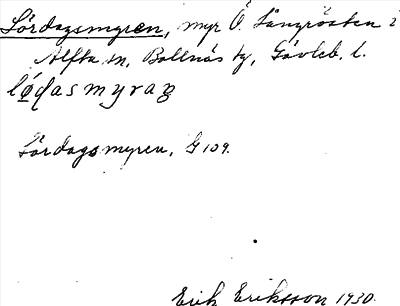 Lördagsmyren, myr Ö. Långrösten i
Alfta sn, Bollnäs tg, Gävleb. l.
lǫdasmyraɳ
Lördagsmyren, G 109.
Erik Eriksson 1930.